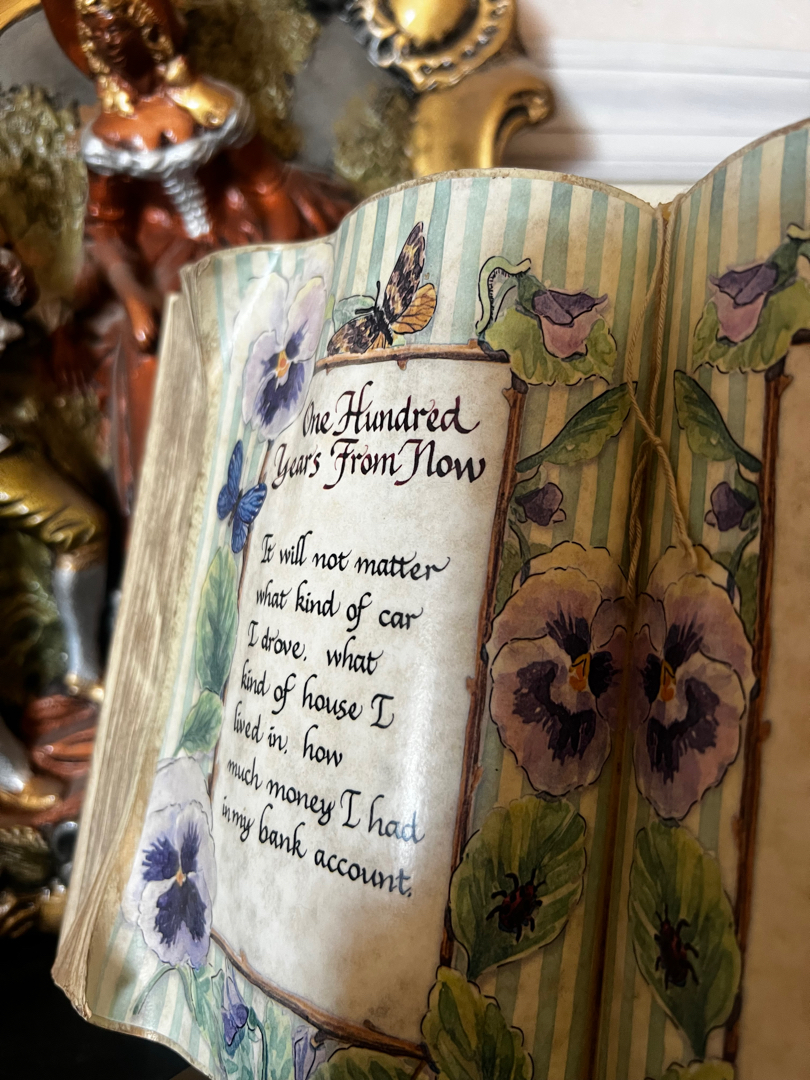 One Hundred
Years From Now
It will not matter
what kind of car
I drove, what
kind of house I
lived in, how
much money I had
in my bank account.